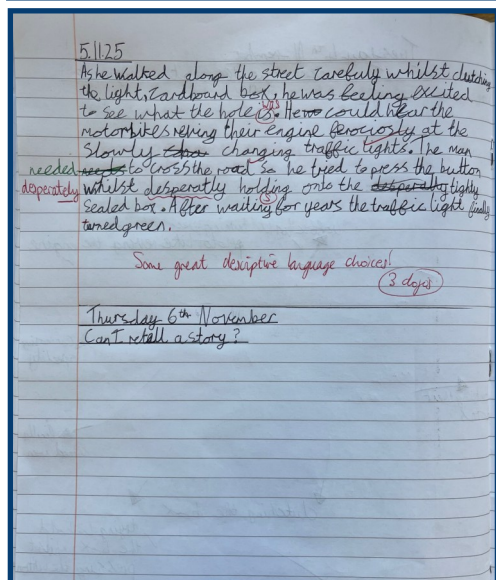 5.11.25
As he walked along the street carefuly whilst clutching
the light, cardboard box, he was feeling excited
to see what the hole is. He could hear the
was
motorbikes reving their engine ferociosly at the
Slowly changing traffic lights. The man
needed needs to cross the road so he tried to press the button
desperately whilst desperatly holding onto the desperatly tighly
sealed box. After waiting for years the traffic light finally
turned green.
Some great descriptive language choices!
3 dojos
Thursday 6th November
Can I retell a story?